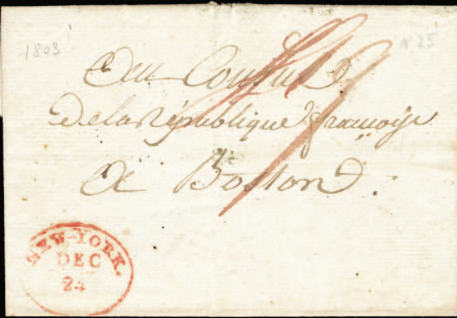 1803
N 25
Au Consul
de la République françoise
A Boston.
NEW-YORK.
DEC
24